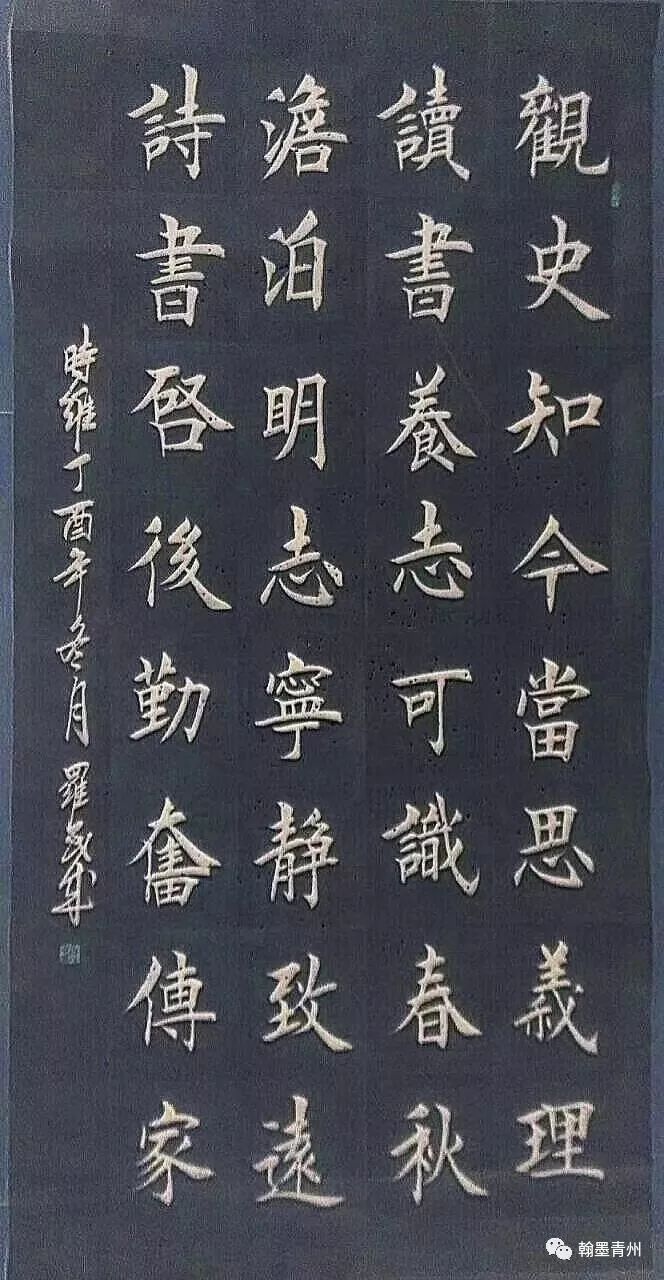 觀史知今當思義理
讀書養志可識春秋
澹泊明志寧靜致遠
詩書啓後勤奮傳家
時維丁酉年冬月羅
翰墨青州